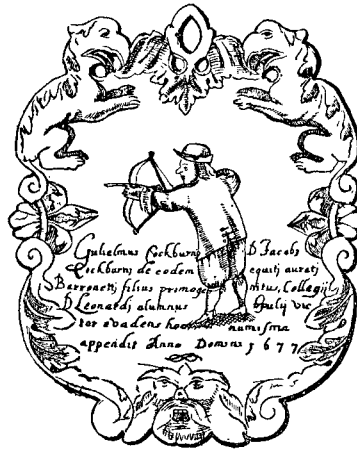 Gulielmus Cockburn D Jacobi
Cockburn de eodem equitis aurati
Barronetti filius primogenitus, Collegij
D Leonardi alumnus Apulij vic
tor evadens hoc numisma
appendit Anno Domini 1677